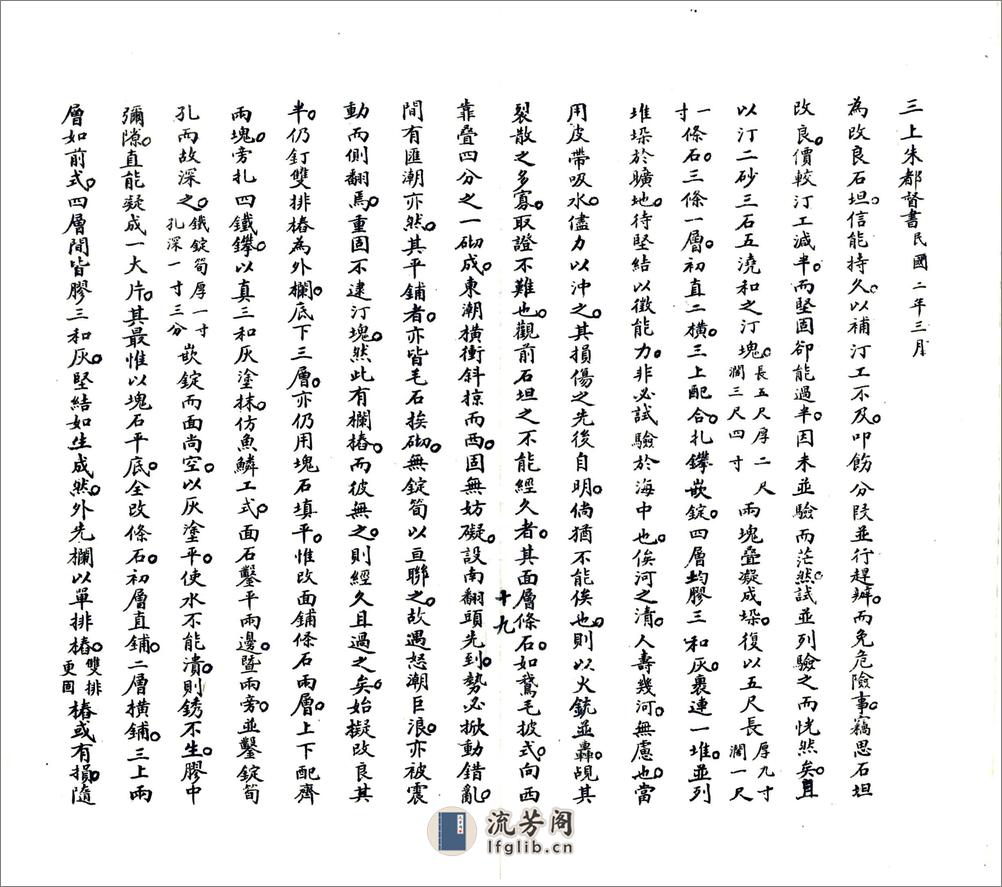 三上朱都督書民國二年三月
為改良石坦信能持久以補汀工不及叩飭分段並行趕辦而免危險事竊思石坦
改良價較汀工減半而堅固卻能過半因未並驗而茫然試並列驗之而恍然矣且
以汀二砂三石五澆和之汀塊長五尺厚二尺濶三尺四寸兩塊疊凝成垛復以五尺長厚九寸濶一尺
一寸條石三條一層初直二橫三上配合扎鑻嵌錠四層均膠三和灰裹連一堆並列
堆垛於曠地待堅結以徵能力非必試驗於海中也俟河之清人壽幾河無慮也當
用皮帶吸水儘力以沖之其損傷之先後自明倘猶不能俟也則以火銃並轟覘其
裂散之多寡取證不難也觀前石坦之不能經久者其面層條石如鵞毛披式向西
十九
靠疊四分之一砌成東潮橫衝斜掠而西固無妨礙設南翻頭先到勢必掀動錯亂
間有匯潮亦然其平鋪者亦皆毛石挨砌無錠筍以亘聯之故遇怒潮巨浪亦被震
動而側翻焉重固不逮汀塊然此有欄樁而彼無之則經久且過之矣始擬改良其
半仍釘雙排樁為外欄底下三層亦仍用塊石填平惟改面鋪條石兩層上下配齊
兩塊旁扎四鐵鑻以真三和灰塗抹仿魚鱗工式面石鑿平兩邊暨兩旁並鑿錠筍
孔而故深之鐵錠筍厚一寸孔深一寸三分嵌錠而面尚空以灰塗平使水不能漬則銹不生膠中
彌隙直能凝成一大片其最惟以塊石平底全改條石初層直鋪二層橫鋪三上兩
層如前式四層間皆膠三和灰堅結如生成然外先欄以單排樁雙排更固樁或有損隨
流芳阁
lfglib.cn